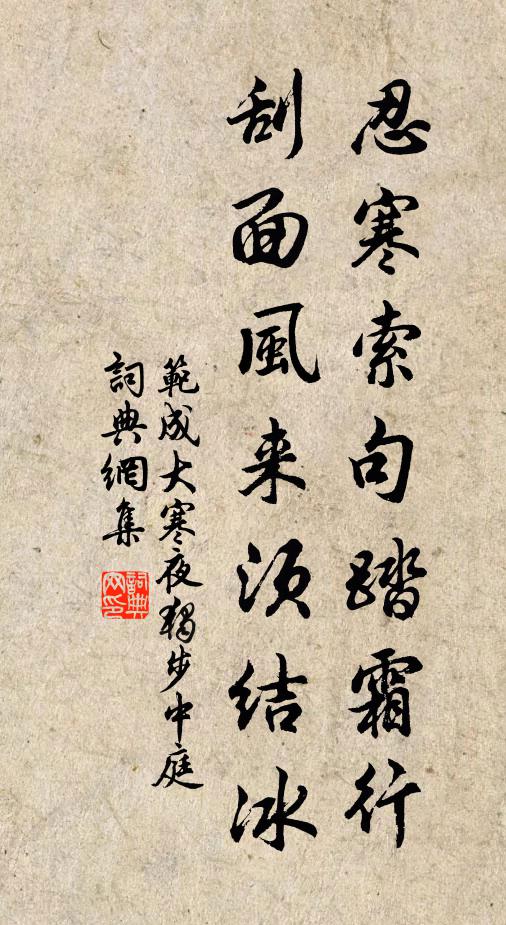 忍寒索句踏霜行
刮面風来須結冰
範成大寒夜獨步中庭
詞典網集
詞典
网印